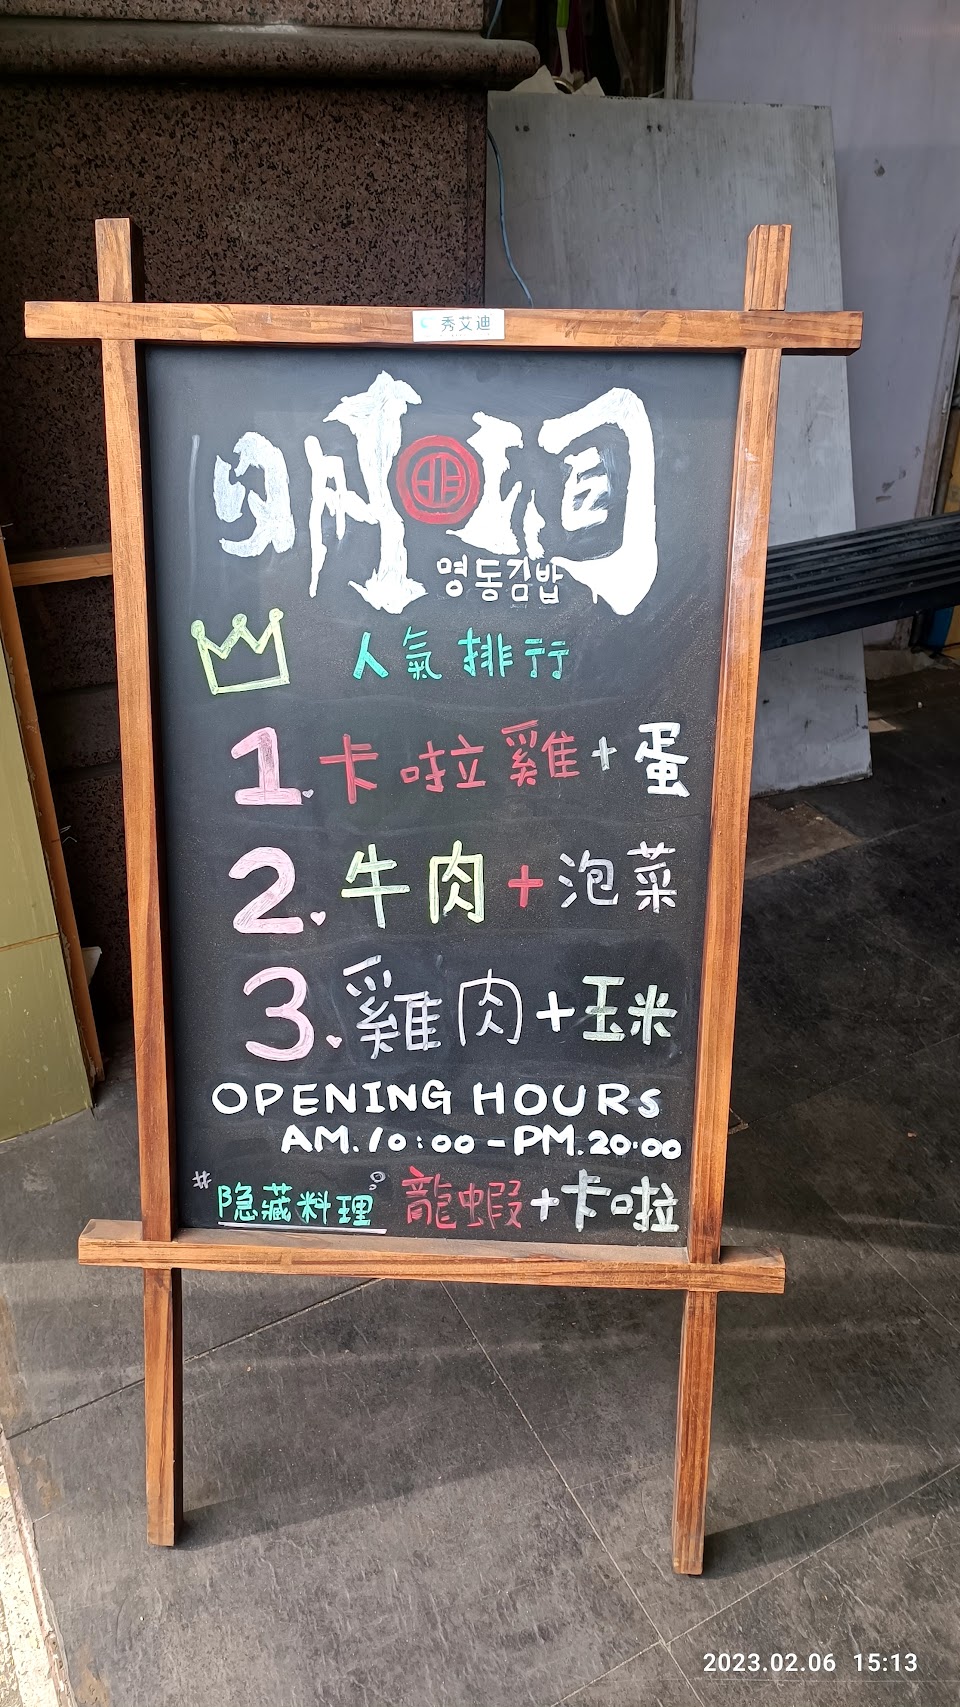 秀艾迪
明洞
명동김밥
人氣排行
1. 卡啦雞+蛋
2. 牛肉+泡菜
3. 雞肉+玉米
OPENING HOURS
AM.10:00-PM.20:00
#隐藏料理 龍蝦+卡啦
2023.02.06 15:13